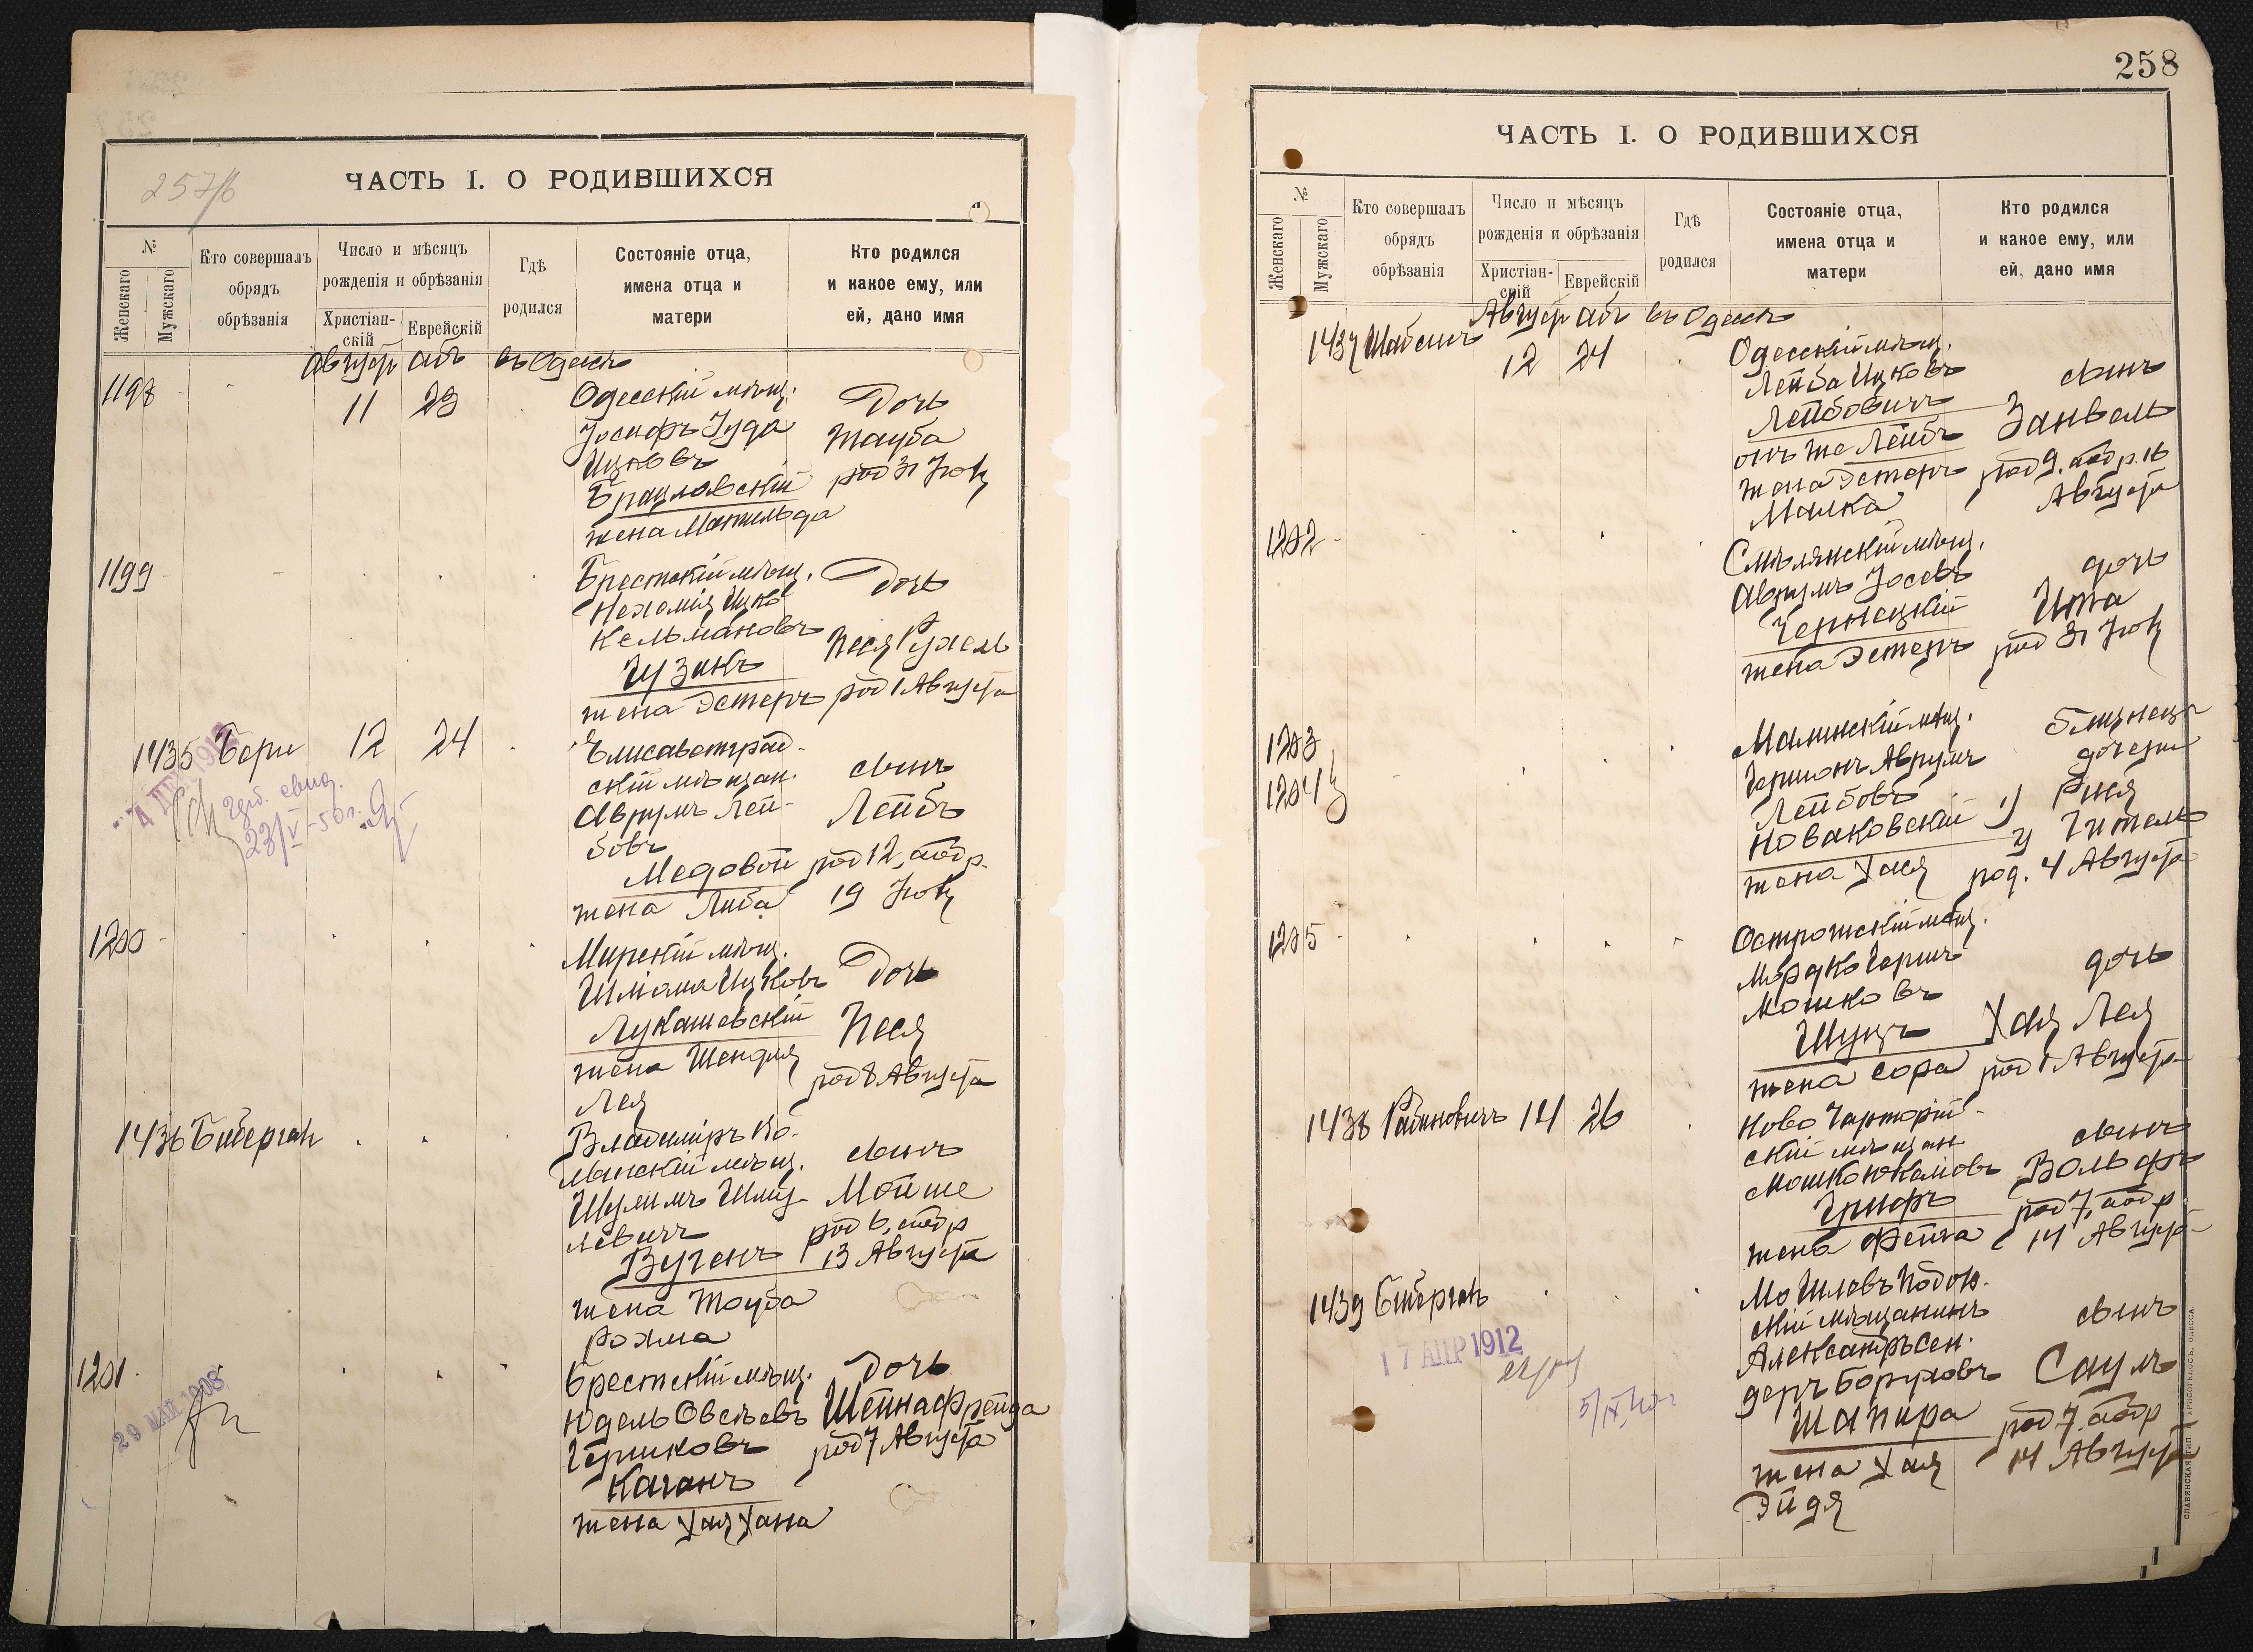 257/б
ЧАСТЬ I. О РОДИВШИХСЯ
№
Женскаго
Мужскаго
Кто совершалъ
обрядъ
обрѣзанія
Число и мѣсяцъ
рожденія и обрѣзанія
Христіан-
скій
Еврейскій
Гдѣ
родился
Состояніе отца,
имена отца и
матери
Кто родился
и какое ему, или
ей, дано имя
Август Абъ въ Одессѣ
1198
11 23
Одесскій мѣщ.
Іосифъ Іуда
Ицковъ
Брацлавскій
жена Матильда
Дочь
Тауба
род 31 Юл
1199
Брестскій мѣщ.
Нехемія Ицко
Кельмановъ
Гузикъ
жена Эстеръ
Дочь
Песя Рухель
род 1 Августа
1435 Бери 12 24
Елисаветград-
скій мѣщан.
Аврумъ Лей-
бовъ
Медовой
жена Либа
сынъ
Лейбъ
род 12, абр.
19 Юл
23/V-50г.
1200
Мирскій мѣщ.
Шліома Ицковъ
Лукашевскій
жена Шендля
Лея
Дочь
Песя
род 8 Августа
1436
Владиміръ Во-
лынскій мѣщ.
Шулимъ Шму-
левичъ
Вугенъ
жена Тауба
Рохма
сынъ
Мойше
род 6, абр
13 Августа
1201
29 МАЙ 1908
Брестскій мѣщ.
Юдель Овсѣевъ
Гершковъ
Каганъ
жена Хая Хана
дочь
Шейна Фрейда
род 7 Августа
258
ЧАСТЬ I. О РОДИВШИХСЯ
№
Женскаго
Мужскаго
Кто совершалъ
обрядъ
обрѣзанія
Число и мѣсяцъ
рожденія и обрѣзанія
Христіан-
скій
Еврейскій
Гдѣ
родился
Состояніе отца,
имена отца и
матери
Кто родился
и какое ему, или
ей, дано имя
Август Абъ въ Одессѣ
1437 12 24
Одесскій мѣщ.
Лейба Ицковъ
Лейбовичъ
онъ же Лейбъ
жена Эстеръ
Малка
сынъ
Занвель
род 9. абр. 16
Августа
1202
Смѣлянскій мѣщ.
Аврумъ Іосевъ
Чернецкій
жена Эстеръ
дочь
Ита
род 31 Юл
1203
1204
Малинскій мѣщ.
Гершонъ Аврумъ
Лейбовъ
Новаковскій
жена Хася
близнец
дочери
1) Рися
2) Гитель
род. 4 Августа
1205
Острожскій мѣщ.
Мордко Гершъ
Мошковъ
Шуцъ
жена Сора
дочь
Хая Лея
род 1 Августа
1438 Рабиновичъ 14 26
Ново Чарторій-
скій мѣщан.
Грифъ
жена Фейга
сынъ
Вольфъ
род 7, абр
14 Августа
1439
17 АПР 1912
Могилевъ Подол.
скій мѣщанинъ
Александръ Сен-
деръ Боруховъ
Шапира
жена Хая
Эйдя
сынъ
Саулъ
род 7. абр
14 Августа
СЛАВЯНСКАЯ ТИП. Н. ХРИСОГЕЛОСЪ, ОДЕССА.